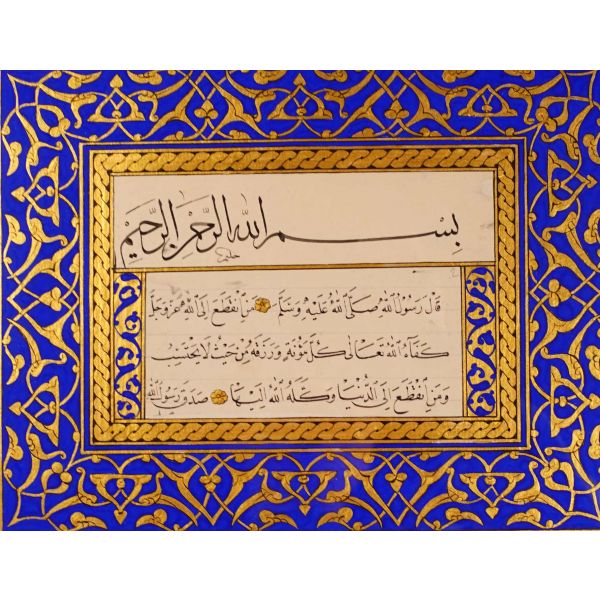 بِسْمِ اللّٰهِ الرَّحْمٰنِ الرَّحِيْمِ
قَالَ رَسُولُ اللّٰهِ صَلَّى اللّٰهُ عَلَيْهِ وَسَلَّمَ مَنِ انْقَطَعَ إِلَى اللّٰهِ عَزَّ وَجَلَّ
كَفَاهُ اللّٰهُ تَعَالَى كُلَّ مَؤُنَةٍ وَرَزَقَهُ مِنْ حَيْثُ لَا يَحْتَسِبُ
وَمَنِ انْقَطَعَ إِلَى الدُّنْيَا وَكَلَهُ اللّٰهُ إِلَيْهَا صَدَقَ رَسُولُ اللّٰهِ